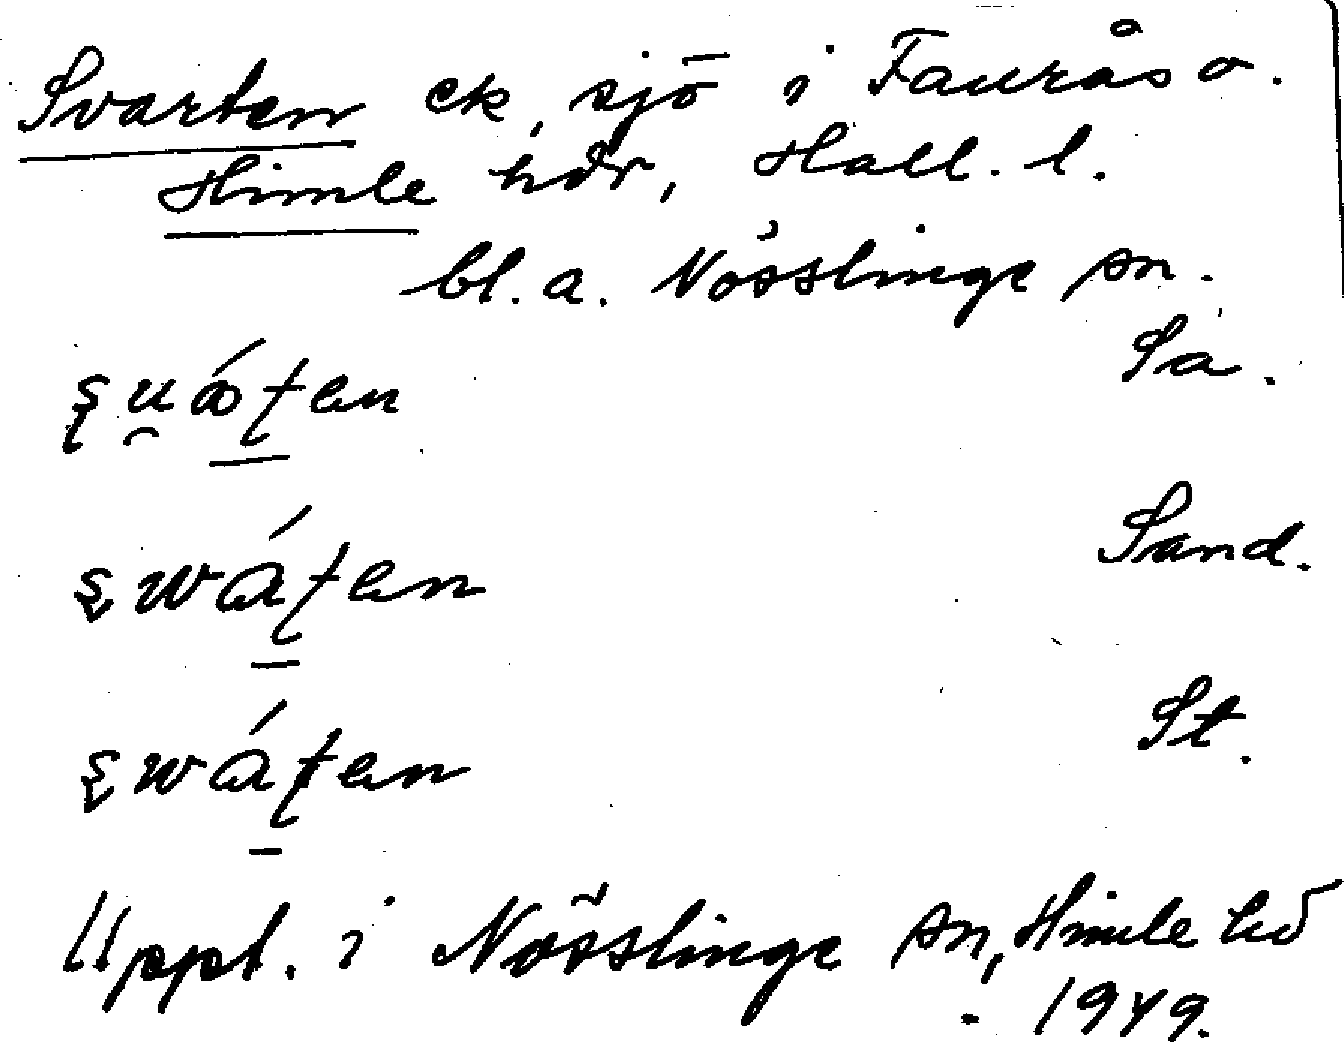 Svarten ek, sjö i Faurås o.
Himle hdr, Hall. l.
bl. a. Nösslinge sn.
Sa.
Sand.
St.
Uppt. i Nösslinge sn, Himle hd
1949.